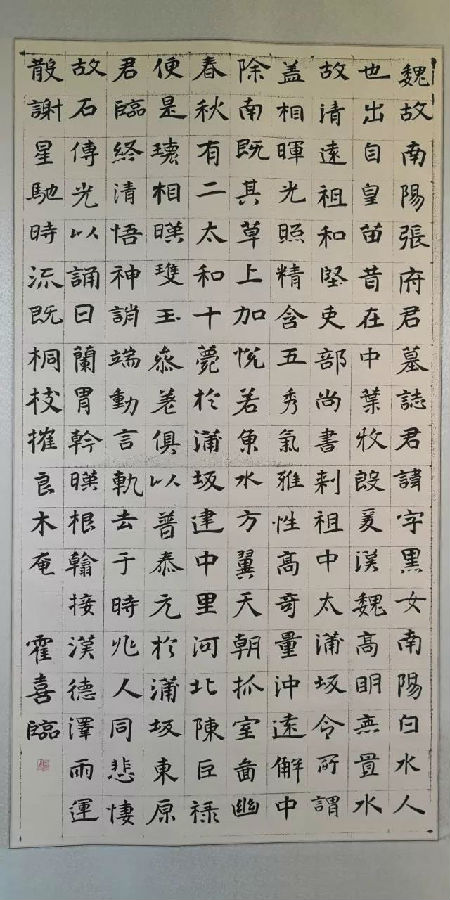 魏故南陽張府君墓誌君諱字黑女南陽白水人
也出自皇苗昔在中葉牧殷爰漢魏高明無置水
故清遠祖和堅吏部尚書剌祖中太蒲坂令所謂
蓋相暉光照精含五秀氣雅性高奇量沖遠解中
除南既其草上加悅若魚水方翼天朝抓室啚幽
春秋有二太和十薨於蒲坂建中里河北陳巨祿
便是瓌相暎雙玉叅差俱以普泰元於蒲坂東原
君臨終清悟神誚端動言軌去于時兆人同悲悽
故石傳光以誦曰蘭胄幹暎根翰接漢德澤雨運
散謝星馳時流既桐枝摧良木奄 霍喜臨